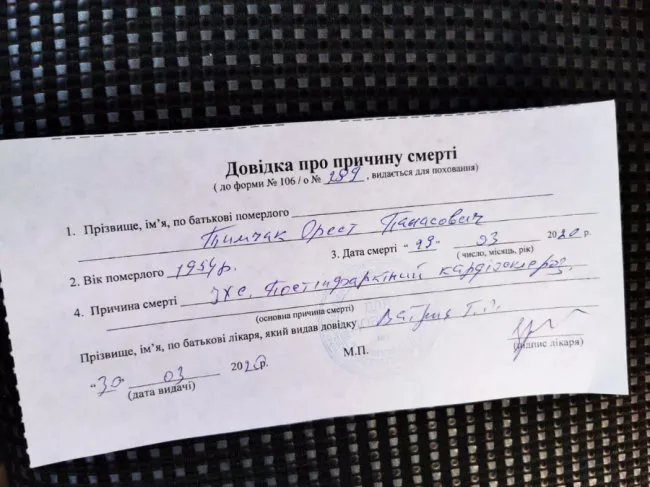 Довідка про причину смерті
( до форми № 106 / о № 289 , видається для поховання)
1. Прізвище, ім’я, по батькові померлого
Тимчак Орест Панасович
2. Вік померлого 1954 р. 3. Дата смерті “ ” 03 2020
( число, місяць, рік)
4. Причина смерті ІХС. Постінфарктний кардіосклероз.
(основна причина смерті)
Прізвище, ім’я, по батькові лікаря, який видав довідку
М.П. (підпис лікаря)
“30” 03 2020 р.
(дата видачі)